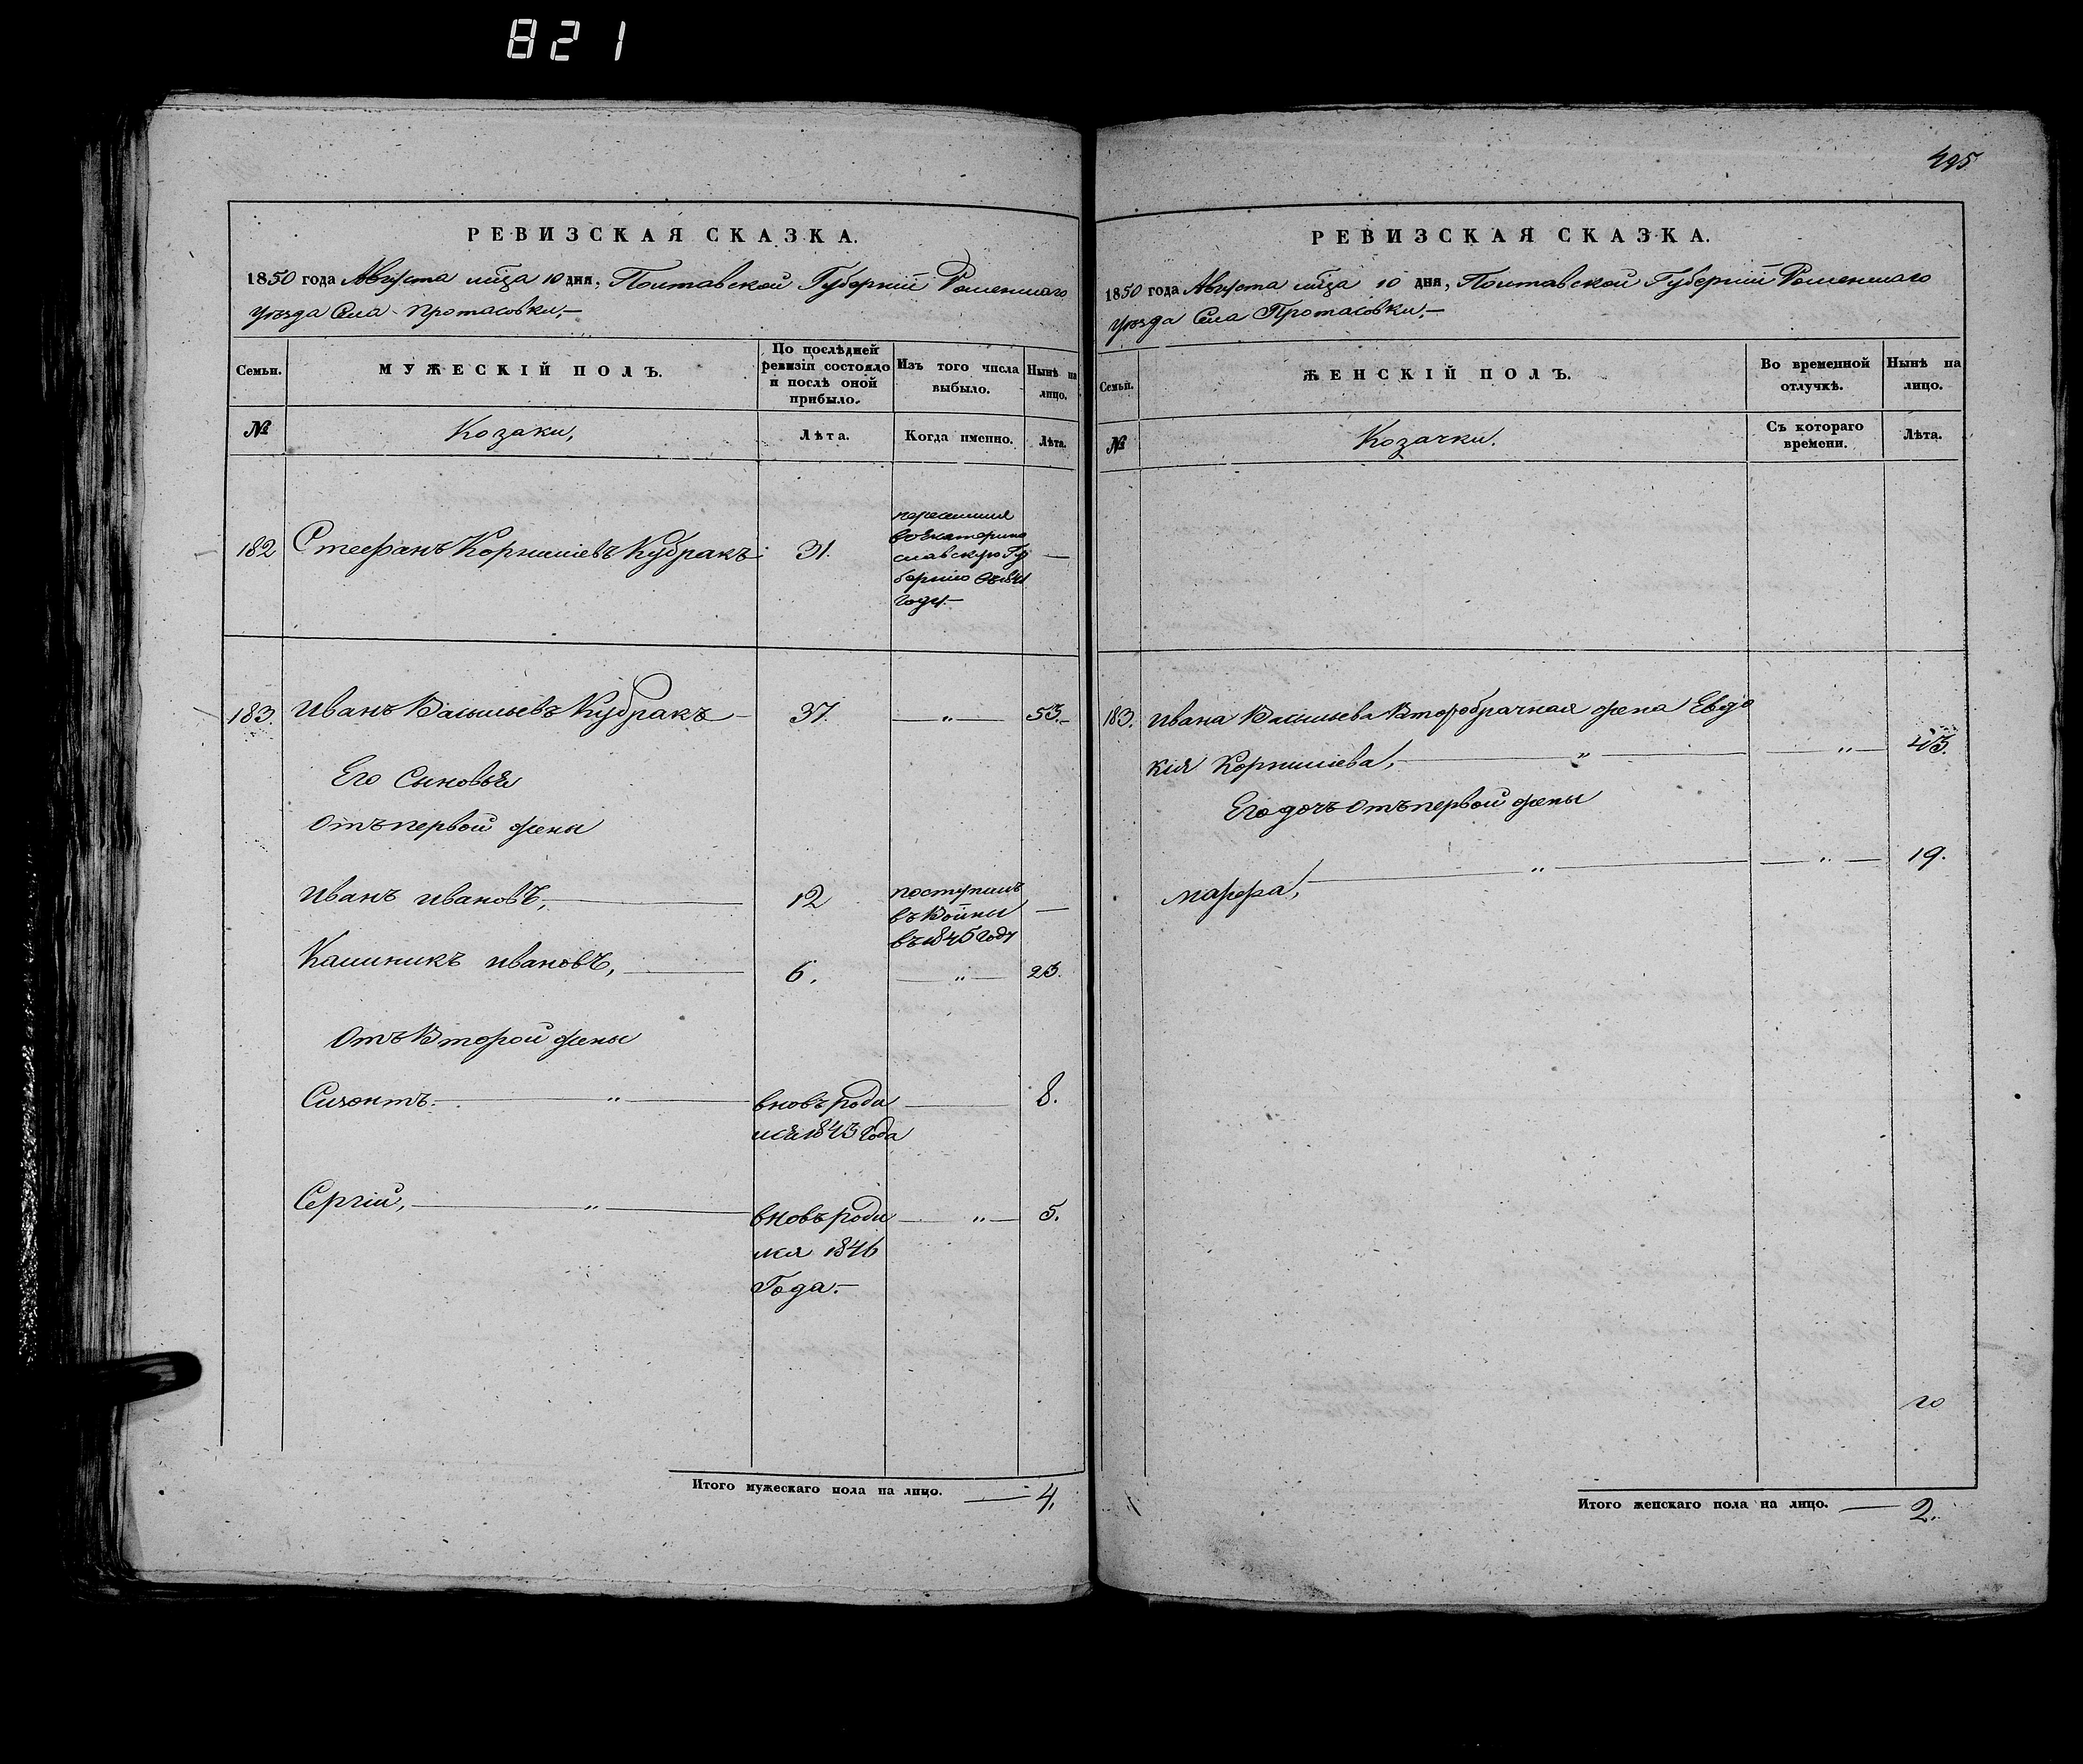 821
РЕВИЗСКАЯ СКАЗКА.
1850 года Августа мѣца 10 дня, Полтавской Губерніи Роменскаго
уѣзда Села Протасовки,—
Семьи.
МУЖЕСКІЙ ПОЛЪ.
По послѣдней
ревизіи состояло
и послѣ оной
прибыло.
Изъ того числа
выбыло.
Нынѣ на
лицо.
№
Козаки,
Лѣта.
Когда именно.
Лѣта.
182 Стефанъ Корнилiевъ Кубракъ 31.
переселился
въ Екатерино
славскую Гу
бернію въ 1841
году.—
183. Иванъ Васильевъ Кубракъ — 37. — „ — 53.—
Его Сыновья
отъ первой жены
Иванъ Ивановъ, — 12
поступилъ
въ Войны
въ 1845 году
—
Калиникъ Ивановъ, — 6. — „ — 23.
Отъ Второй жены
Сизонтъ. — „ — вновь роди — 8.
лся 1843 года
Сергій, — „ — вновь роди — „ — 5.
лся 1846
Года.—
Итого мужескаго пола на лицо. — 4.
495
РЕВИЗСКАЯ СКАЗКА.
1850 года Августа мѣца 10 дня, Полтавской Губерніи Роменскаго
уѣзда Села Протасовки,—
Семьи.
ЖЕНСКІЙ ПОЛЪ.
Во временной
отлучкѣ.
Нынѣ на
лицо.
№
Козачки.
Съ котораго
времени.
Лѣта.
183. Ивана Васильева Второбрачная жена Евдо
кія Корнилiева, — „ — — „ — 43.
Его дочь отъ первой жены
Марфа, — „ — — „ — 19.
Итого женскаго пола на лицо. — 2.